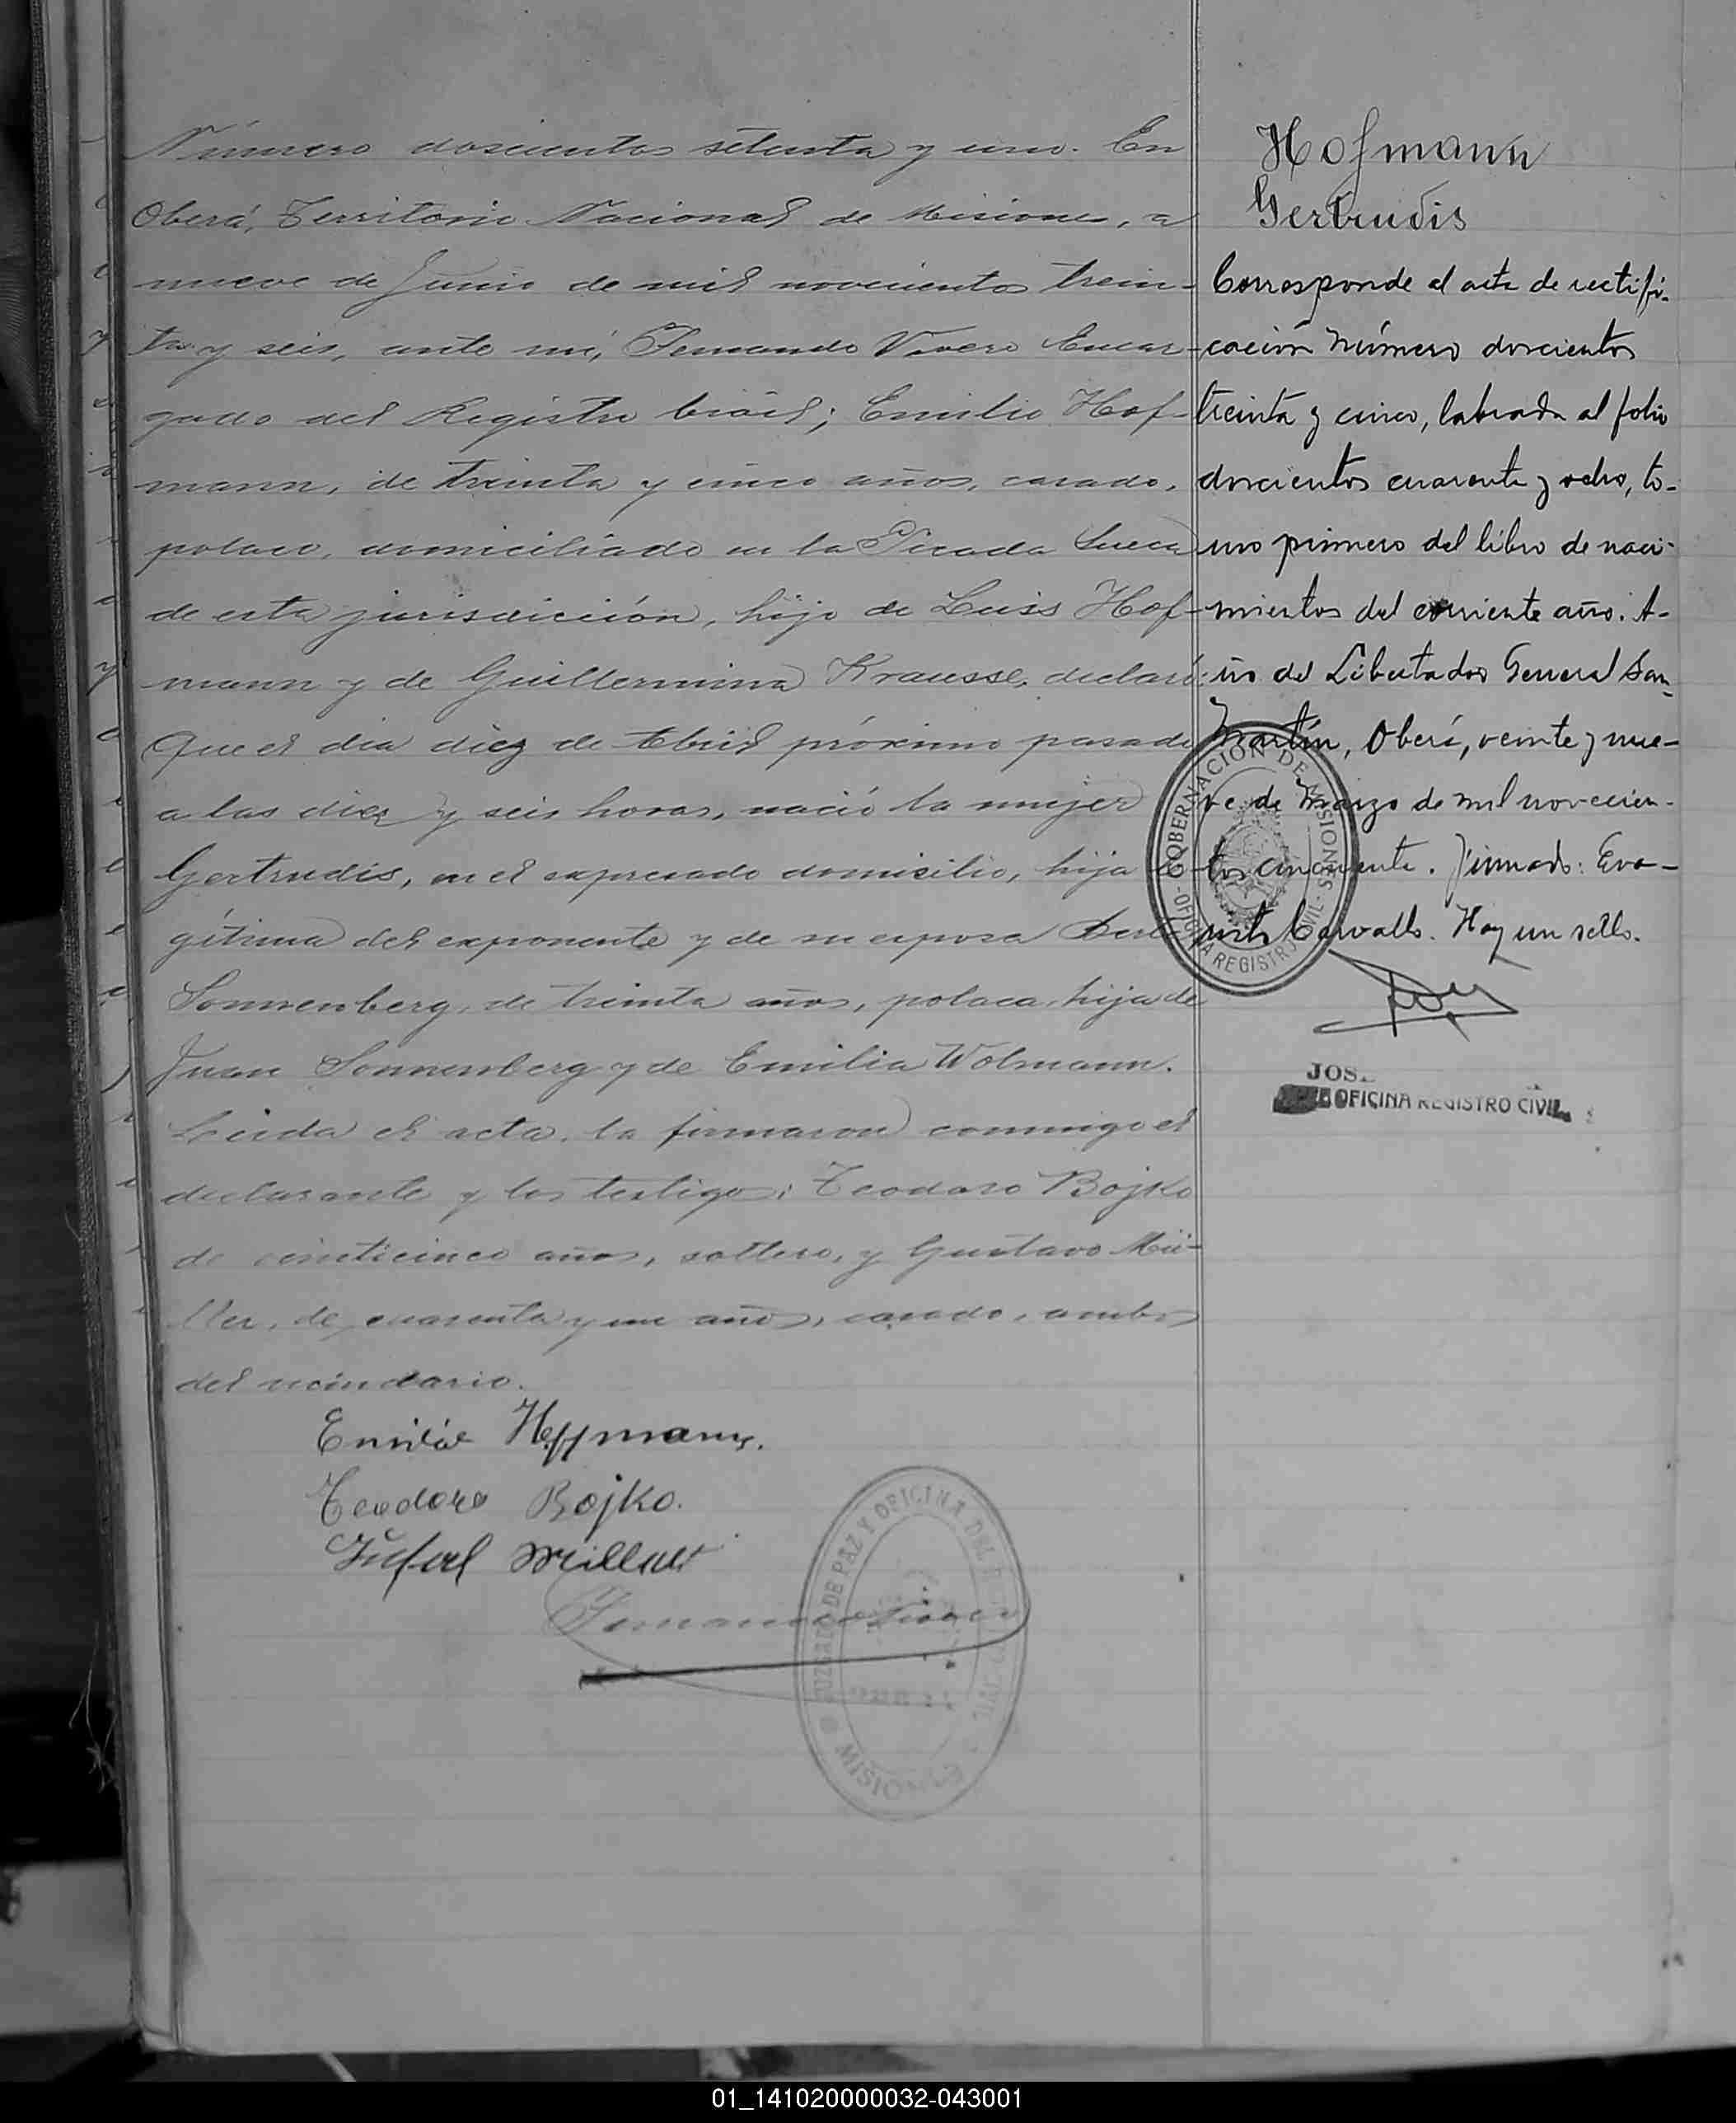 Número doscientos setenta y uno. En
Oberá, Territorio Nacional de Misiones, a
nueve de Junio de mil novecientos trein-
ta y seis, ante mí, Fernando Vivero Encar-
gado del Registro Civil; Emilio Hof-
mann, de treinta y cinco años, casado,
polaco, domiciliado en la Picada Sueca
de esta jurisdicción, hijo de Luis Hof-
mann y de Guillermina Krausse, declaró:
Que el dia diez de Abril próximo pasado
a las diez y seis horas, nació la mujer
Gertrudis, en el expresado domicilio, hija le-
gítima del exponente y de su esposa Berta
Sonnenberg, de treinta años, polaca, hija de
Juan Sonnenberg y de Emilia Wolmann.
Leida el acta, la firmaron conmigo el
declarante y los testigos: Teodoro Bojko
de veinticinco años, soltero, y Gustavo Mü-
ller, de cuarenta y un años, casado, ambos
del vecindario.
Hoffmann.
Teodoro Bojko.
Fernando Vivero
JUZGADO DE PAZ Y OFICINA DEL
MISIONES
Hofmann
Gertrudis
Corresponde el acta de rectifi-
cación número doscientos
treinta y cinco, labrada al folio
doscientos cuarenta y ocho, to-
mo primero del libro de naci-
mientos del corriente año. A-
ño del Libertador General San
Martín, Oberá, veinte y nue-
ve de Marzo de mil novecien-
tos cincuenta. Firmado: Eva-
risto Carvallo. Hay un sello.
GOBERNACION DE MISIONES
OFICINA REGISTRO CIVIL
JOS
OFICINA REGISTRO CIVIL
01_141020000032-043001